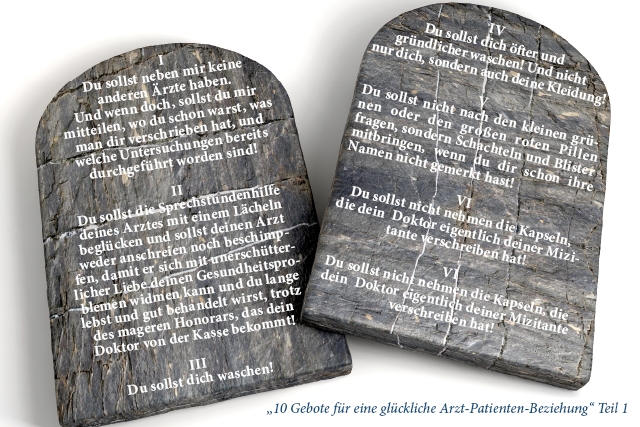 I
Du sollst neben mir keine
anderen Ärzte haben.
Und wenn doch, sollst du mir
mitteilen, wo du schon warst, was
man dir verschrieben hat, und
welche Untersuchungen bereits
durchgeführt worden sind!
II
Du sollst die Sprechstundenhilfe
deines Arztes mit einem Lächeln
beglücken und sollst deinen Arzt
weder anschreien noch beschimp-
fen, damit er sich mit unerschütter-
licher Liebe deinen Gesundheitspro-
blemen widmen kann und du lange
lebst und gut behandelt wirst, trotz
des mageren Honorars, das dein
Doktor von der Kasse bekommt!
III
Du sollst dich waschen!
IV
Du sollst dich öfter und
gründlicher waschen! Und nicht
nur dich, sondern auch deine Kleidung!
V
Du sollst nicht nach den kleinen grü-
nen oder den großen roten Pillen
fragen, sondern Schachteln und Blister
mitbringen, wenn du dir schon ihre
Namen nicht gemerkt hast!
VI
Du sollst nicht nehmen die Kapseln,
die dein Doktor eigentlich deiner Mizi-
tante verschreiben hat!
VI
Du sollst nicht nehmen die Kapseln, die
dein Doktor eigentlich deiner Mizitante
verschreiben hat!
„10 Gebote für eine glückliche Arzt-Patienten-Beziehung“ Teil 1